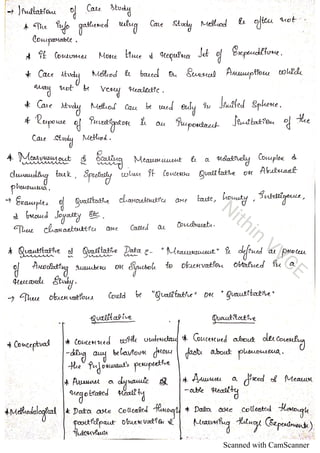 → Limitation of Case Study
* The Info gathered using Case Study Method is often not
Comparable.
* It Consumes More time & requires lot of Expenditure.
* Case study Method is based on Several Assumptions which
may not be very realistic.
* Case study Method can be used only in limited Sphere.
* Response of Investigator is an Important limitation of the
Case study Method.
* Measurement & Scaling Measurement is a relatively Complex &
demanding task, Specially when it Concerns Qualitative or Abstract
phenomena.
→ Example of Qualitative characteristics are taste, beauty, Intelligence,
& brand loyalty Etc.
These characteristics are called as Constructs.
* Quantitative & Qualitative Data :- "Measurement" is defined as process
of Associating numbers or Symbols to observation obtained in a
research Study.
→ These observations Could be "Qualitative" or "Quantitative"
Qualitative Quantitative
* Conceptual * Concerned with understan * Concerned about discovering
-ding any behaviour from facts about phenomena.
the Informant's perspective
* Assumes a dynamic & * Assumes a fixed & Measur
negotiated reality -able reality
* Methodological * Data are collected through * Data are collected through
participant observation & Measuring things (Experiments)
Interviews
Nithin VVCE
Scanned with CamScanner